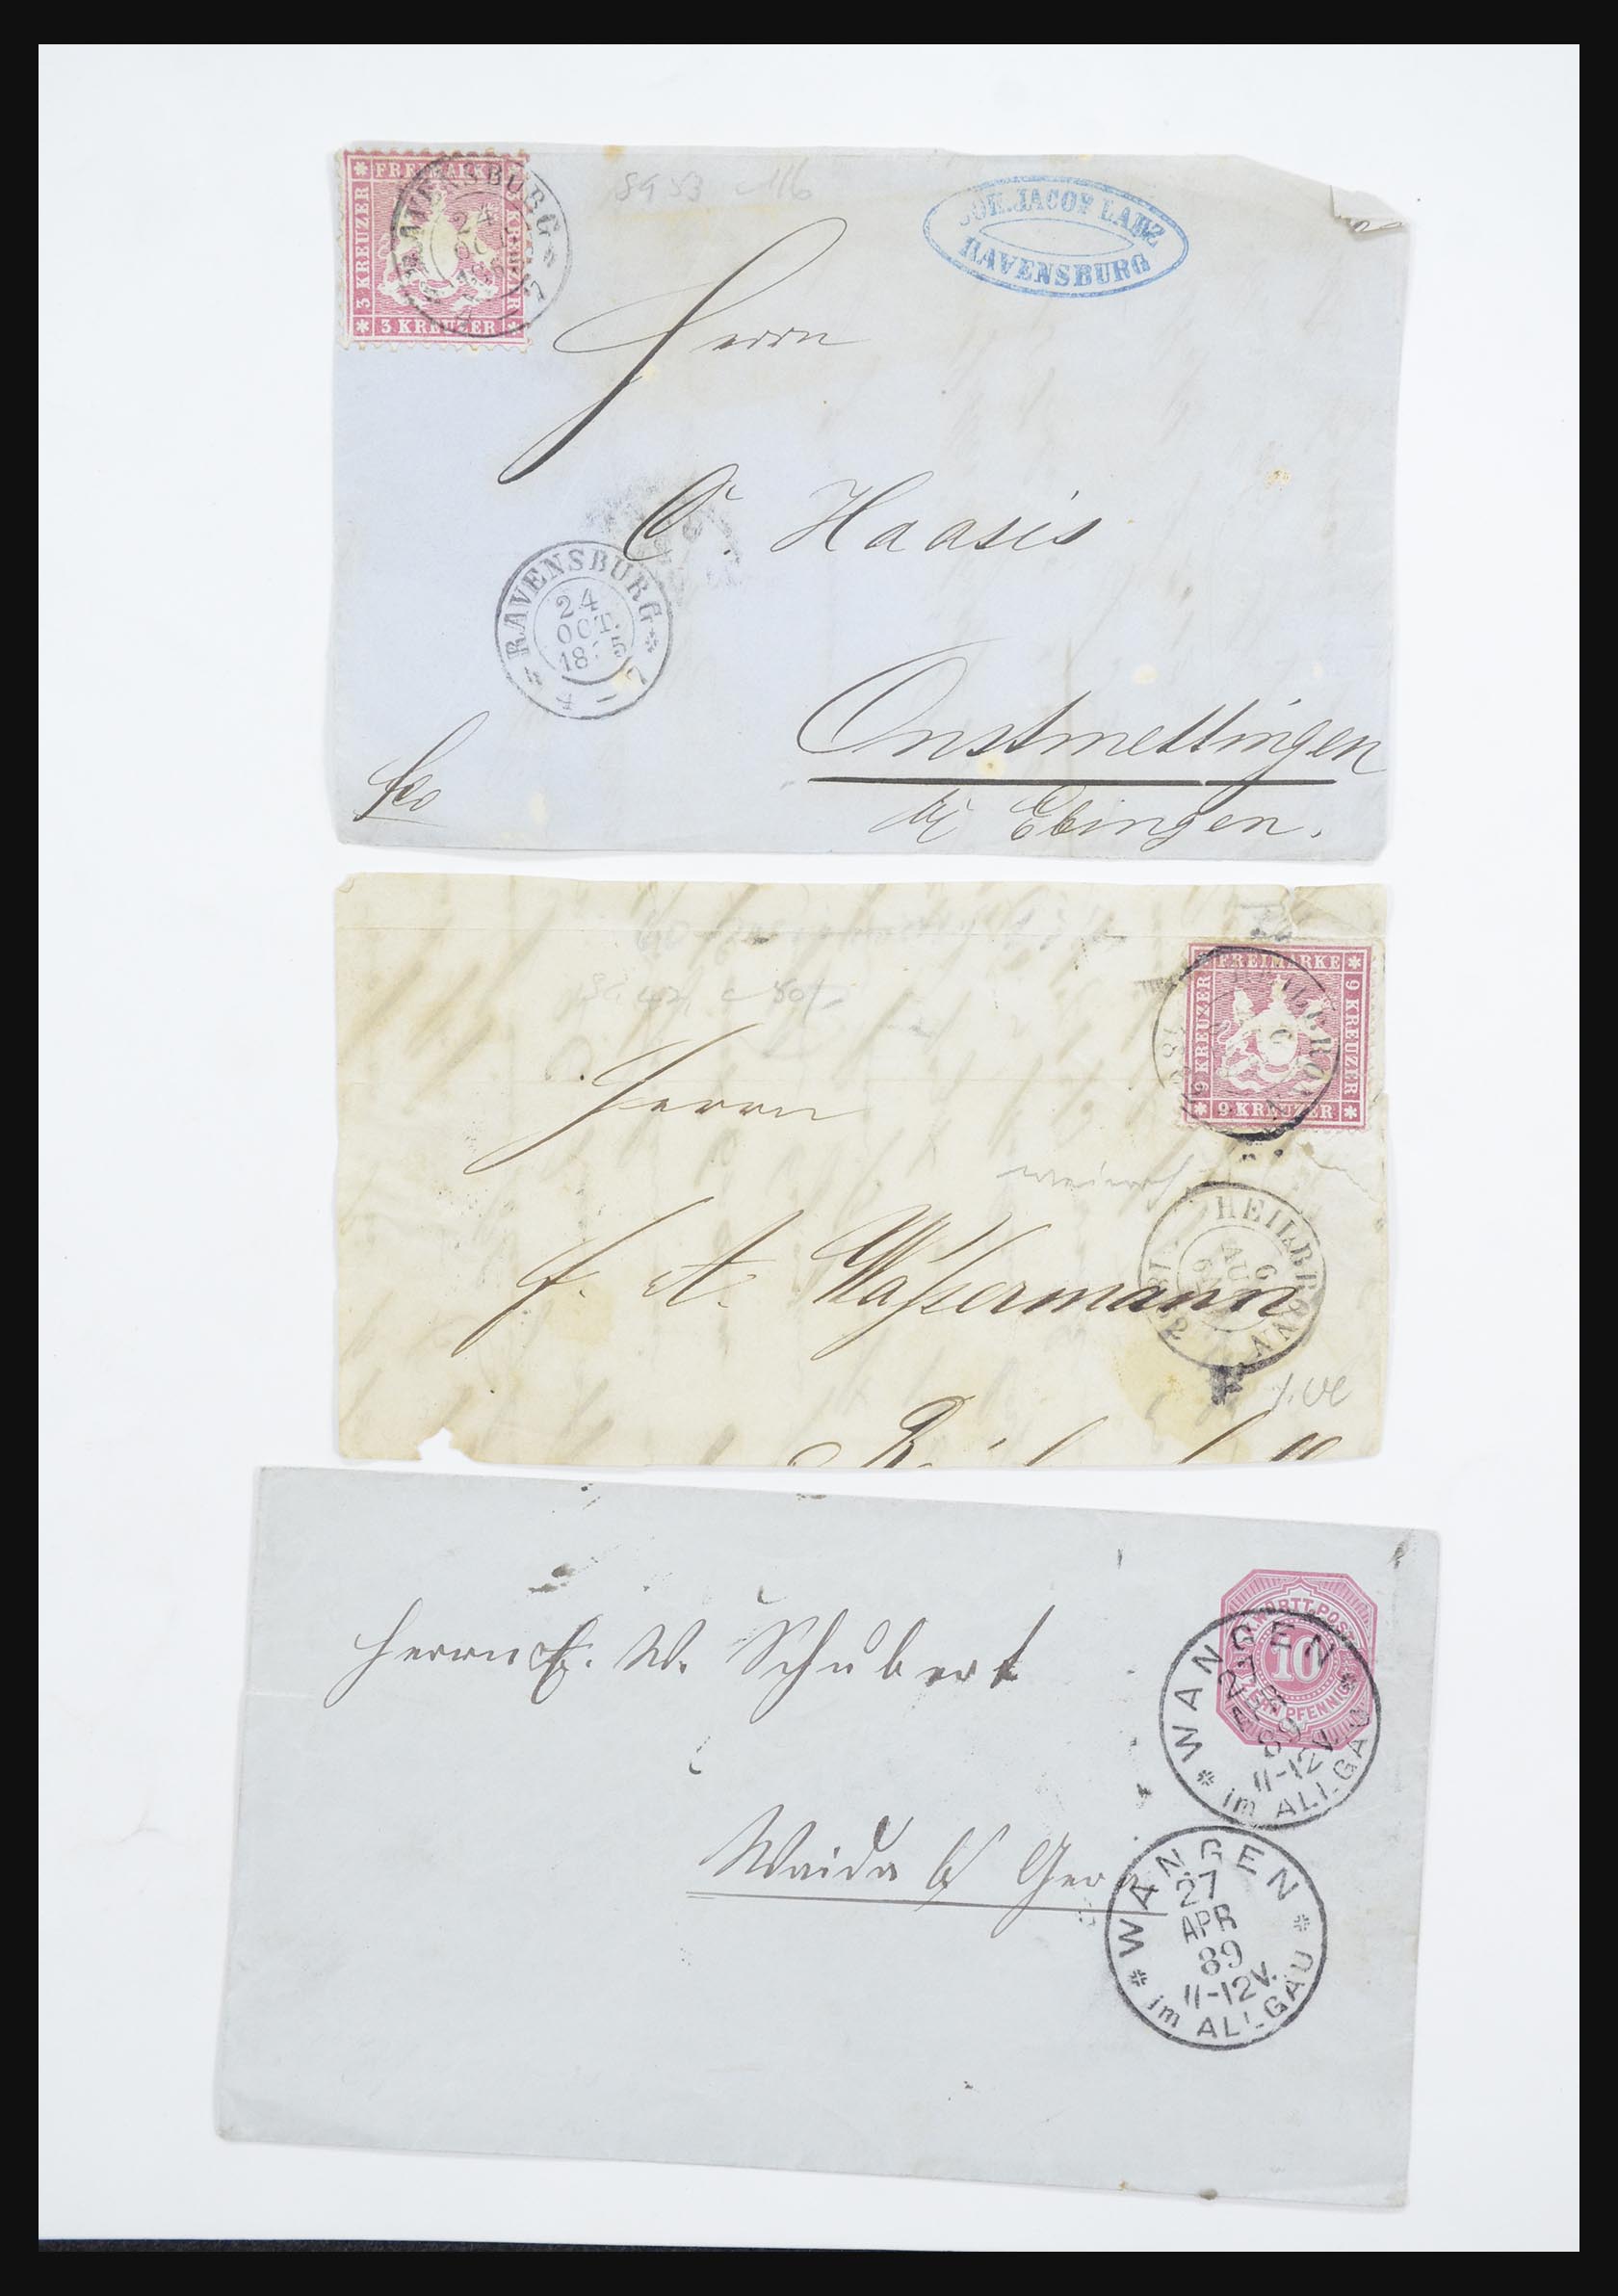 FREIMARKE
3 KREUZER
3 KREUZER
3 KREUZER
RAVENSBURG
24
OCT
SG 53 c116
JOH. JACOB LANZ
RAVENSBURG
Herrn
C. Haasis
RAVENSBURG
24
OCT.
18
4 - 7
Onstmettingen
bei Ebingen.
fco
SG 42 c 80/-
FREIMARKE
9 KREUZER
9 KREUZER
9 KREUZER
HEILBRONN
6
Herrn
F. A. Wassermann
HEILBRONN
6
AUG
Herrn E. W. Schubert
WÜRTT. POST
10
ZEHN PFENNIG
WANGEN
27
APR
89
11-12V.
im ALLGÄU
Waida b/ Gera
WANGEN
27
APR
89
11-12V.
im ALLGÄU